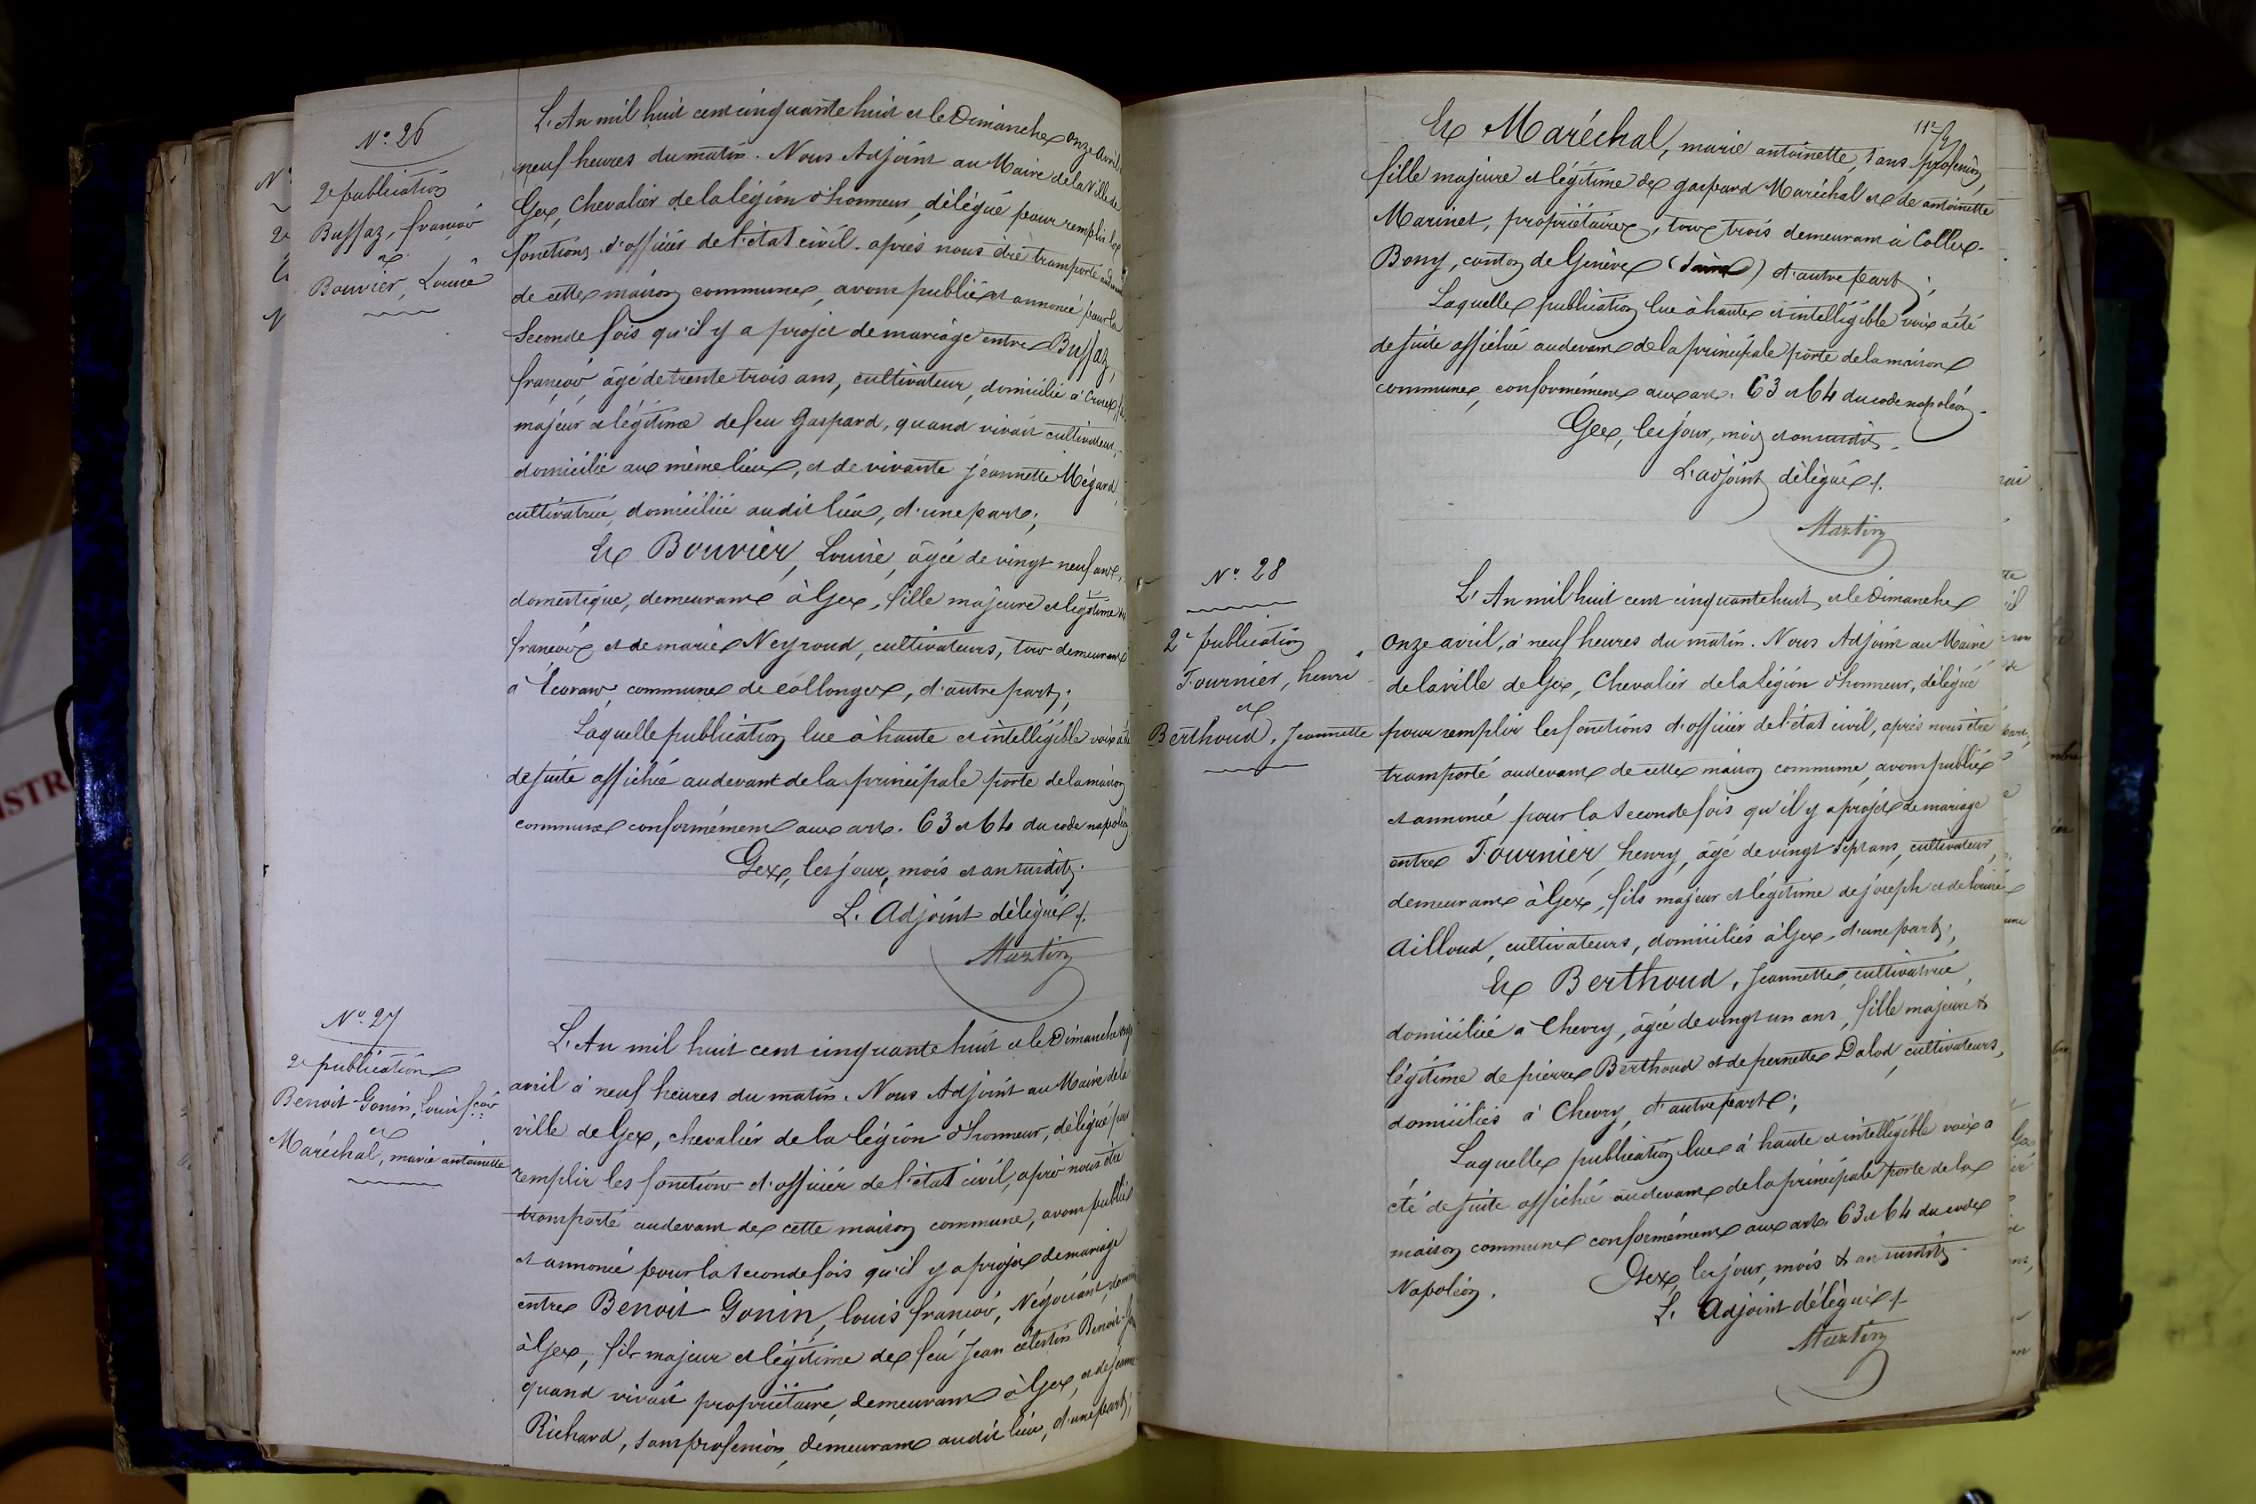 N° 26
2e publication
Buffaz, françois
et
Bouvier, Louise
L'An mil huit cent cinquante huit et le Dimanche onze avril
neuf heures du matin. Nous Adjoint au Maire de la Ville de
Gex, Chevalier de la légion d'honneur, délégué pour remplir les
fonctions d'officier de l'état civil. après nous être transporté au devant
de cette maison commune, avons publié et annoncé pour la
seconde fois qu'il y a projet de mariage entre Buffaz,
françois, âgé de trente trois ans, cultivateur, domicilié à
majeur et légitime de feu Gaspard, quand vivait cultivateur,
domicilié au même lieu, et de vivante jeannette Mégard,
cultivatrice, domiciliée audit lieu, d'une part;
Et Bouvier, Louise, âgée de vingt neuf ans,
domestique, demeurant à Gex, fille majeure et légitime de
françois et de marie Neyroud, cultivateurs, tous demeurant
à Écorans, commune de collonges, d'autre part;
Laquelle publication lue à haute et intelligible voix a été
de suite affiché au devant de la principale porte de la maison
commune conformément aux arts. 63 et 64 du code napoléon
Gex, les jour, mois et an susdits.
L'Adjoint délégué.
Martin
N° 27
2e publication
Benoit-Gonin, Louis fçois
et
Maréchal, marie antoinette
L'An mil huit cent cinquante huit et le Dimanche onze
avril à neuf heures du matin. Nous Adjoint au Maire de la
ville de Gex, chevalier de la légion d'honneur, délégué pour
remplir les fonctions d'officier de l'état civil, après nous être
transporté au devant de cette maison commune, avons publié
et annoncé pour la seconde fois qu'il y a projet de mariage
entre Benoit-Gonin, louis françois, Négociant,
à Gex, fils majeur et légitime de feu Jean célestin Benoit-
quand vivait propriétaire, demeurant à Gex, et de Jeanne
Richard, sans profession, demeurant audit lieu, d'une part;
112
Et Maréchal, marie antoinette, sans profession,
fille majeure et légitime de gaspard Maréchal et de antoinette
Marinet, propriétaires, tous trois demeurant à Collex-
Bossy, canton de Genève (Suisse) d'autre part;
Laquelle publication lue à haute et intelligible voix a été
de suite affiché au devant de la principale porte de la maison
commune, conformément aux arts. 63 et 64 du code napoléon.
Gex, les jour, mois et an susdits.
L'adjoint délégué.
Martin
N° 28
2e publication
Fournier, henri
et
Berthoud, Jeannette
L'An mil huit cent cinquante huit et le Dimanche
onze avril, à neuf heures du matin. Nous Adjoint au Maire
de la ville de Gex, Chevalier de la légion d'honneur, délégué
pour remplir les fonctions d'officier de l'état civil, après nous être
transporté au devant de cette maison commune, avons publié
et annoncé pour la seconde fois qu'il y a projet de mariage
entre Fournier, henry, âgé de vingt sept ans, cultivateur,
demeurant à Gex, fils majeur et légitime de joseph et de louise
Ailloud, cultivateurs, domiciliés à Gex, d'une part;
Et Berthoud, Jeannette, cultivatrice,
domiciliée à Chevry, âgée de vingt un ans, fille majeure &
légitime de pierre Berthoud et de pernette Dalod, cultivateurs,
domiciliés à Chevry, d'autre part;
Laquelle publication lue à haute et intelligible voix a
été de suite affiché au devant de la principale porte de la
maison commune conformément aux arts. 63 et 64 du code
Napoléon. Gex, les jour, mois & an susdits.
L'Adjoint délégué.
Martin